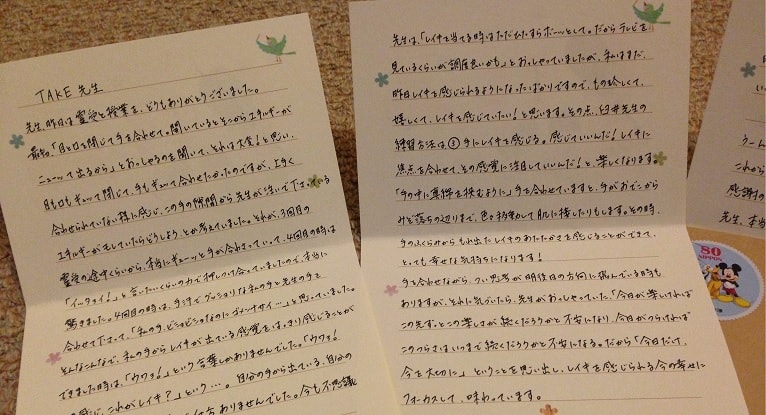 TAKE 先生
先生、昨日は霊受と授業を、どうもありがとうございました。
最初、「目と口を閉じて手を合わせて。開いているとそこからエネルギーが
ニューッて出るから」とおっしゃるのを聞いて、それは大変！と思い、
目も口もギューッて閉じて、手もギューッて合わせたかったのですが、上手く
合わせられていない様に感じ、この手の隙間から先生が注いで下さっている
エネルギーがモレていたらどうしよう、とか考えていました。それが、3回目の
霊受の途中くらいから、本当にギューッと手が合わさっていって、4回目の時は
「イ～タ～イ！」と言いたいくらいの力で押しつけ合っていましたので、本当に
驚きました。4回目の時は、手汗でグッショリな私の手と先生の手を
合わせて下さって、「私の手、ビショビショなのに・・ゴメンナサイ…」と思っていました。
そんなこんなで、私の手からレイキが出ている感覚を、はっきり感じることが
できました時は、「ウワゥ！」という言葉しかありませんでした。「ウワゥ！
これがレイキ？」という…。自分の手から出ている、自分の
ありませんでした。今も不思議
先生は、「レイキを当てる時はただひたすらボーッとして。だからテレビを
見ているくらいが調度良いかも」とおっしゃっていましたが、私はまだ、
昨日レイキを感じられるようになったばかりですので、もの珍しくて、
嬉しくて、レイキを感じていたい！と思います。その点、臼井先生の
練習方法は、③手にレイキを感じる。感じていいんだ！レイキに
焦点を合わせて、その感覚に注目していいんだ！と、楽しくなります。
「手の中に真綿を挟むように」手を合わせていますと、手がおでこから
みぞ落ちの辺りまで、色々移動して肌に接したりもします。その時、
手のふくらみからもれ出たレイキのあたたかさを感じることができて、
とっても幸せな気持ちになります！
手を合わせながら、つい思考が明後日の方向に飛んでいる時も
ありますが、それに気づいたら、先生がおっしゃっていた、「今日が楽しければ
この先ずっとこの楽しさが続くだろうかと不安になり、今日がつらければ
このつらさはいつまで続くだろうかと不安になる。だから「今日だけ、
今を大切に」ということを思い出し、レイキを感じられる今の幸せに
フォーカスして、味わっています。
うーん
これから
感謝の
先生、本当
80
NIPPON